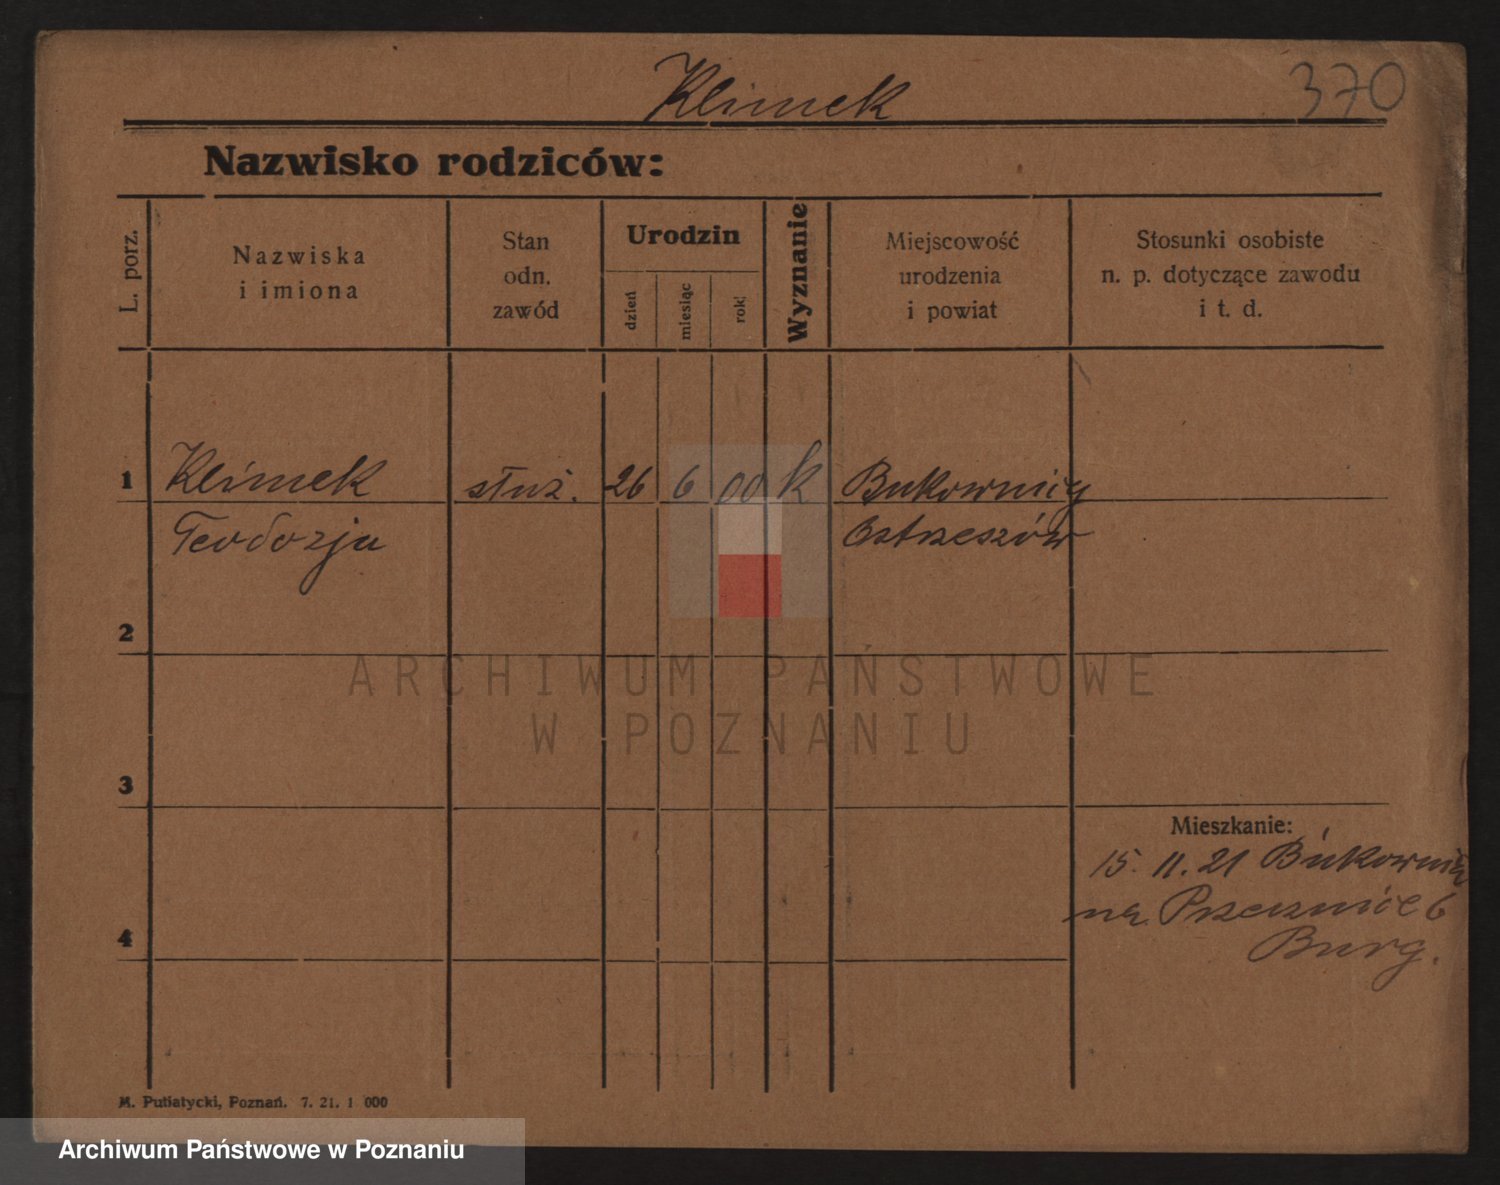 Klimek
370
Nazwisko rodziców:
L. porz.
Nazwiska
i imiona
Stan
odn.
zawód
Urodzin
dzień
miesiąc
rok
Wyznanie
Miejscowość
urodzenia
i powiat
Stosunki osobiste
n. p. dotyczące zawodu
i t. d.
1 Klimek służ. 26 6 00 k Bukownicy
Teodozja Ostrzeszów
2
3
Mieszkanie:
15. 11. 21 Bukownica
na 6
4
Burg.
ARCHIWUM PAŃSTWOWE
W POZNANIU
M. Putiatycki, Poznań. 7. 21. 1 000
Archiwum Państwowe w Poznaniu